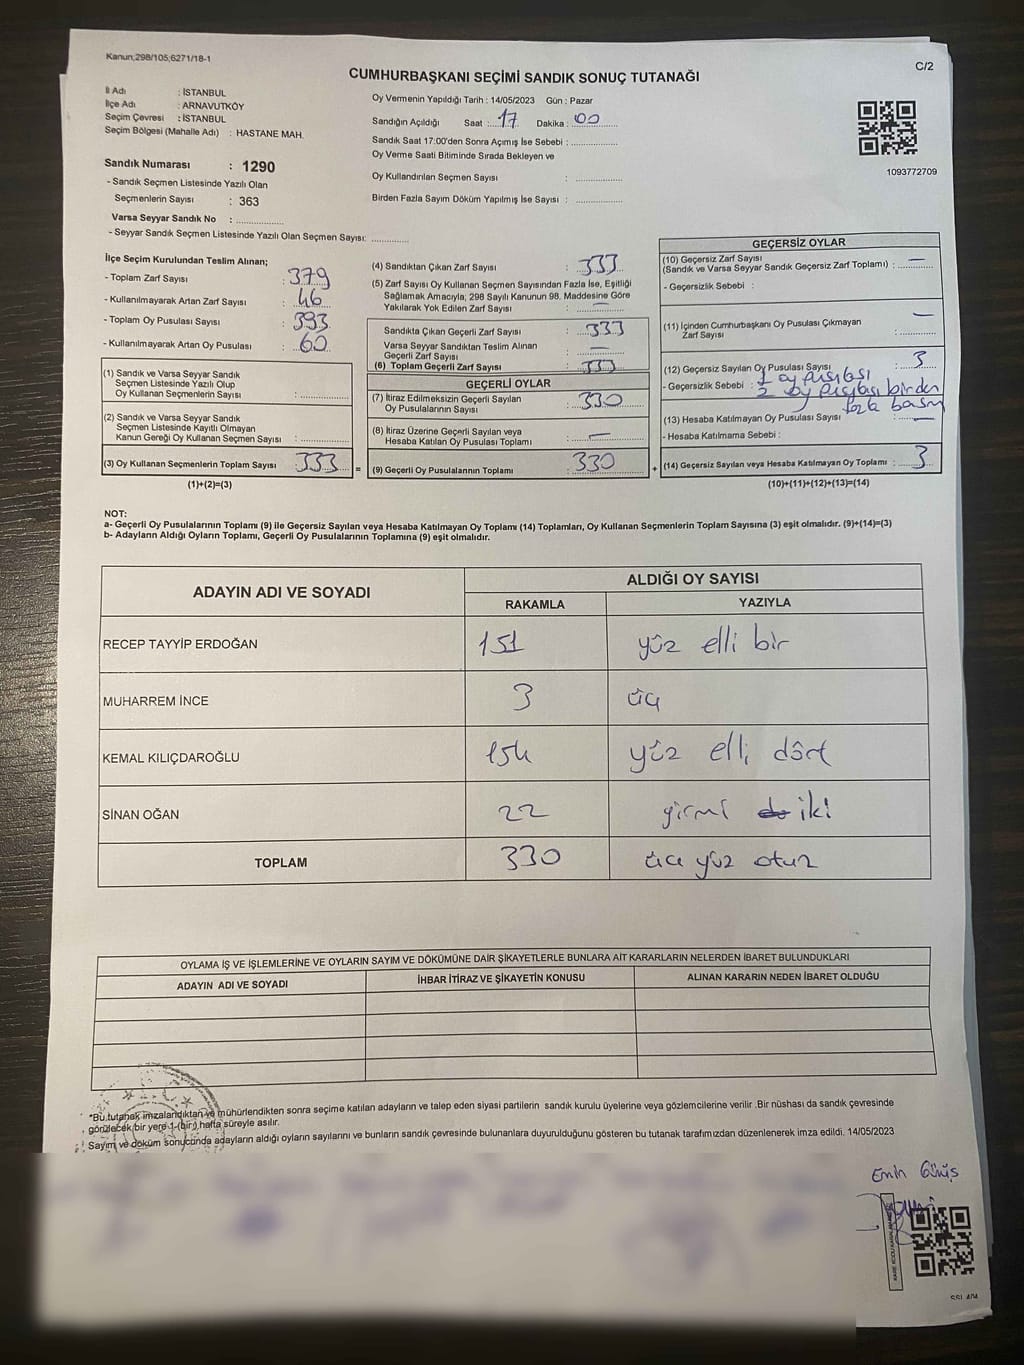 Kanun;298/105;6271/18-1
C/2
CUMHURBAŞKANI SEÇİMİ SANDIK SONUÇ TUTANAĞI
İl Adı : İSTANBUL
İlçe Adı : ARNAVUTKÖY
Seçim Çevresi : İSTANBUL
Seçim Bölgesi (Mahalle Adı) : HASTANE MAH.
Sandık Numarası : 1290
- Sandık Seçmen Listesinde Yazılı Olan
Seçmenlerin Sayısı : 363
Varsa Seyyar Sandık No : ..............
- Seyyar Sandık Seçmen Listesinde Yazılı Olan Seçmen Sayısı: ............
Oy Vermenin Yapıldığı Tarih : 14/05/2023 Gün : Pazar
Sandığın Açıldığı Saat : 17 Dakika : 00
Sandık Saat 17:00'den Sonra Açımış İse Sebebi : ..............
Oy Verme Saati Bitiminde Sırada Bekleyen ve
Oy Kullandırılan Seçmen Sayısı : ..............
Birden Fazla Sayım Döküm Yapılmış İse Sayısı : ..............
1093772709
İlçe Seçim Kurulundan Teslim Alınan;
- Toplam Zarf Sayısı : 379
- Kullanılmayarak Artan Zarf Sayısı : 46
- Toplam Oy Pusulası Sayısı : 393
- Kullanılmayarak Artan Oy Pusulası : 60
(1) Sandık ve Varsa Seyyar Sandık
Seçmen Listesinde Yazılı Olup
Oy Kullanan Seçmenlerin Sayısı : ..............
(2) Sandık ve Varsa Seyyar Sandık
Seçmen Listesinde Kayıtlı Olmayan
Kanun Gereği Oy Kullanan Seçmen Sayısı : ..............
(3) Oy Kullanan Seçmenlerin Toplam Sayısı 333 =
(1)+(2)=(3)
(4) Sandıktan Çıkan Zarf Sayısı : 333
(5) Zarf Sayısı Oy Kullanan Seçmen Sayısından Fazla İse, Eşitliği
Sağlamak Amacıyla; 298 Sayılı Kanunun 98. Maddesine Göre
Yakılarak Yok Edilen Zarf Sayısı : —
Sandıkta Çıkan Geçerli Zarf Sayısı : 333
Varsa Seyyar Sandıktan Teslim Alınan
Geçerli Zarf Sayısı : —
(6) Toplam Geçerli Zarf Sayısı : 333
GEÇERLİ OYLAR
(7) İtiraz Edilmeksizin Geçerli Sayılan
Oy Pusulalarının Sayısı : 330
(8) İtiraz Üzerine Geçerli Sayılan veya
Hesaba Katılan Oy Pusulası Toplamı : —
(9) Geçerli Oy Pusulalarının Toplamı : 330 +
GEÇERSİZ OYLAR
(10) Geçersiz Zarf Sayısı —
(Sandık ve Varsa Seyyar Sandık Geçersiz Zarf Toplamı) : ............
- Geçersizlik Sebebi :
(11) İçinden Cumhurbaşkanı Oy Pusulası Çıkmayan —
Zarf Sayısı : ............
(12) Geçersiz Sayılan Oy Pusulası Sayısı : 3
- Geçersizlik Sebebi : 1 oy pusılası
2 oy pusılası birden
fazla basım
(13) Hesaba Katılmayan Oy Pusulası Sayısı : —
- Hesaba Katılmama Sebebi :
(14) Geçersiz Sayılan veya Hesaba Katılmayan Oy Toplamı : 3
(10)+(11)+(12)+(13)=(14)
NOT:
a- Geçerli Oy Pusulalarının Toplamı (9) ile Geçersiz Sayılan veya Hesaba Katılmayan Oy Toplamı (14) Toplamları, Oy Kullanan Seçmenlerin Toplam Sayısına (3) eşit olmalıdır. (9)+(14)=(3)
b- Adayların Aldığı Oyların Toplamı, Geçerli Oy Pusulalarının Toplamına (9) eşit olmalıdır.
ADAYIN ADI VE SOYADI
ALDIĞI OY SAYISI
RAKAMLA YAZIYLA
RECEP TAYYİP ERDOĞAN 151 yüz elli bir
MUHARREM İNCE 3 üç
KEMAL KILIÇDAROĞLU 154 yüz elli dört
SİNAN OĞAN 22 yirmi iki
TOPLAM 330 üç yüz otuz
OYLAMA İŞ VE İŞLEMLERİNE VE OYLARIN SAYIM VE DÖKÜMÜNE DAİR ŞİKAYETLERLE BUNLARA AİT KARARLARIN NELERDEN İBARET BULUNDUKLARI
ADAYIN ADI VE SOYADI İHBAR İTİRAZ VE ŞİKAYETİN KONUSU ALINAN KARARIN NEDEN İBARET OLDUĞU
*Bu tutanak imzalandıktan ve mühürlendikten sonra seçime katılan adayların ve talep eden siyasi partilerin sandık kurulu üyelerine veya gözlemcilerine verilir .Bir nüshası da sandık çevresinde
görülecek bir yere 1 (bir) hafta süreyle asılır.
Sayım ve döküm sonucunda adayların aldığı oyların sayılarını ve bunların sandık çevresinde bulunanlara duyurulduğunu gösteren bu tutanak tarafımızdan düzenlenerek imza edildi. 14/05/2023
Emin Gümüş